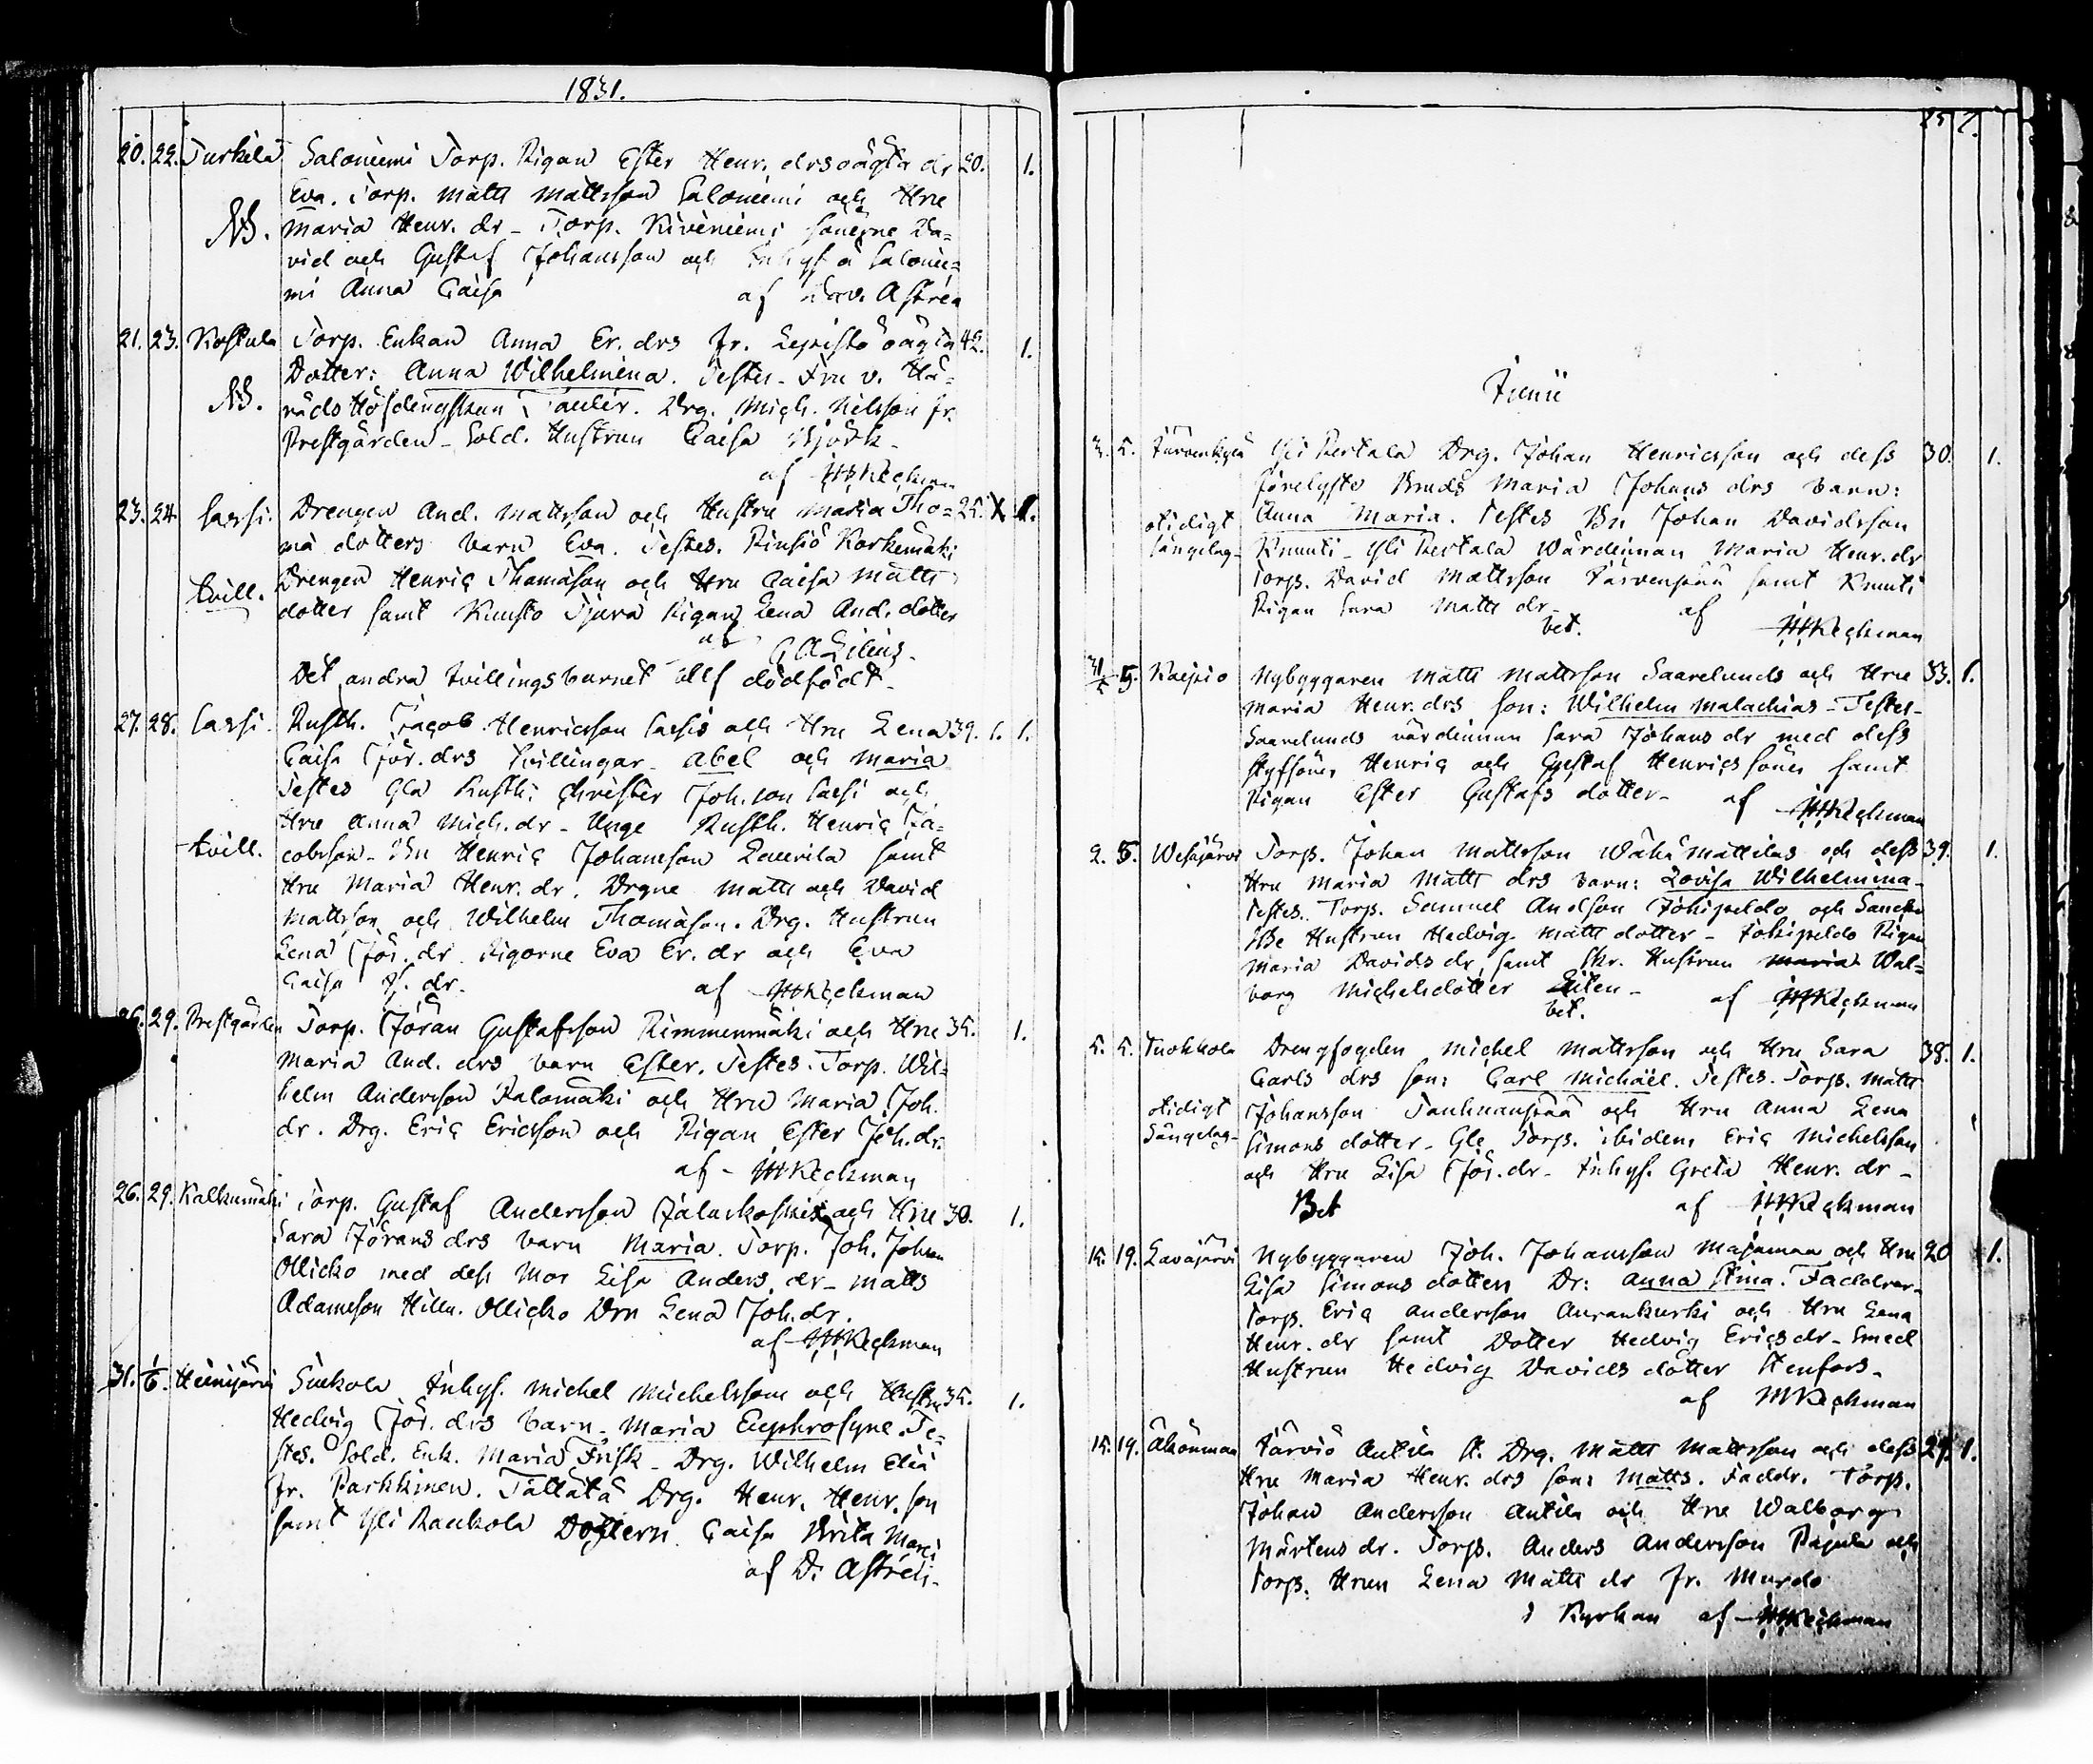 1831.
20. 22. Turkila Saloniemi Torp. Pigan Ester Henr. drs oägta dr 20. 1.
Eva. Torp. Matts Mattsson Saloniemi och Hru
NB. Maria Henr. dr - Torp. Kiviniemi sönerne Da=
vid och Gustaf Johansson och Inhys å Saloni=
mi Anna Caisa af Dav. Astrén
21. 23. Koskula Torp. Enkan Anna Er. drs fr. Lepistö oägta 42. 1.
Dotter: Anna Wilhelmina. Testes - Fru v. Hä=
NB. rads Höfdingskan Tauler. Drg. Mich. Nilsson fr.
Prestgården - Sold. Hustrun Caisa Björk -
af Reckman
23. 24. Sassi. Drengen And. Mattsson och Hustru Maria Tho= 25. 1.
mä dotters barn Eva. Testes. Korkemäki
tvill. Drengen Henric Thomasson och Hru Caisa Matts
dotter samt Kunsto Pigan Lena And. dotter
af G A Lilius.
Det andra tvillingsbarnet blef dödfödt -
27. 28. Sassi. Rusth. Jacob Henricsson Sassis och Hru Lena 39. 1. 1.
Caisa Jör. drs tvillingar - Abel och Maria
Testes Gla Rusth: Christer Joh. son Sassi och
Hru Anna Mich. dr - Unge Rusth. Henric Ja=
tvill. cobsson - Bn Henric Johansson Laurila samt
Hru Maria Henr. dr. Drgne Matts och David
Mattsson och Wilhelm Thomasson. Drg. Hustrun
Lena Jör. dr Pigorne Eva Er. dr och Eva
Caisa dr. af Reckman
26. 29. Prestgården Torp. Jöran Gustafsson Rimmenmäki och Hru 35. 1.
Maria And. drs barn Ester. Testes. Torp. Wil=
helm Andersson Palomäki och Hru Maria Joh.
dr. Drg. Eric Ericsson och Pigan Ester Joh. dr.
af - Reckman
26. 29. Kalkumäki Torp. Gustaf Andersson Jalaskoski och Hru 30. 1.
Sara Jörans drs barn Maria. Torp. Joh. Johan
Ollicko med dess Mor Lisa Anders dr - Matts
Adamsson Hillu. Ollicko Drn Lena Joh. dr.
af Reckman
31. 1/6. Heinijärvi Sinkola Inhys. Michel Michelsson och Hustru 35. 1.
Hedvig Jör. drs barn - Maria Euphrosyne. Te=
stes. Sold. Enk. Maria Frisk - Drg. Wilhelm Elia
fr. Parkkinen. Tällätä Drg. Henr. Henr. son
samt Yli Raukola Dottern Caisa Brita Marci
af D. Astrén.
Junii
3. 5. Järvenkylä Yli Pertala Drg. Johan Henricsson och dess 30. 1.
förelyste Bruds Maria Johans drs barn:
otidigt Anna Maria. Testes Bn Johan Davidsson
sängelag - Knuuti - Yli Pertala Wärdinnan Maria Henr. dr
Torp. David Mattsson Järvenpää samt Knuuti
Pigan Sara Matts dr -
bet. af Reckman
31/5 5. Raipio Nybyggaren Matts Mattsson Saarelunds och Hru 33. 1.
Maria Henr. drs son: Wilhelm Malachias - Testes -
Saarelunds värdinnan Sara Johans dr med dess
styfsöner Henric och Gustaf Henrics söner samt
Pigan Ester Gustafs dotter - af Reckman
2. 5. Wehajärvi Torp. Johan Mattsson Wähämattilas och dess 39. 1.
Hru Maria Matts drs barn: Lovisa Wilhelmina -
Testes. Torp. Samuel Andsson Johipeldo och
Hustrun Hedvig Matts dotter - Johipeldo Pigan
Maria Davids dr, samt Skr. Hustrun Maria Wal=
borg Michelsdotter
bet. af Reckman
5. 5. Tuokkola Drengfogden Michel Mattsson och Hru Sara 38. 1.
Carls drs son: Carl Michaël. Testes. Torp. Matts
otidigt Johansson Tanhuanpää och Hru Anna Lena
sängelag - Simons dotter - Gle Torp. ibidem Eric Michelsson
och Hru Lisa Jör. dr - Inhys. Greta Henr. dr -
Bet af Reckman
15. 19. Lavajärvi Nybyggaren Joh. Johansson Majamaa och Hru 20 1.
Lisa Simons dotters Dr: Anna Stina. Faddrar -
Torp. Eric Andersson Aurankurki och Hru Lena
Henr. dr samt Dotter Hedvig Erics dr - Smed
Hustrun Hedvig Davids dotter Stenfors -
af Reckman
15. 19. Äkönmaa Järviö Antila Drg. Matts Mattsson och dess 29. 1.
Hru Maria Henr. drs son: Matts. Faddr. Torp.
Johan Andersson Antila och Hru Walborg
Mårtens dr. Torp. Anders Andersson Pajula och
Torp. Hrun Lena Matts dr fr. Murdo
i Kyrkan af Reckman